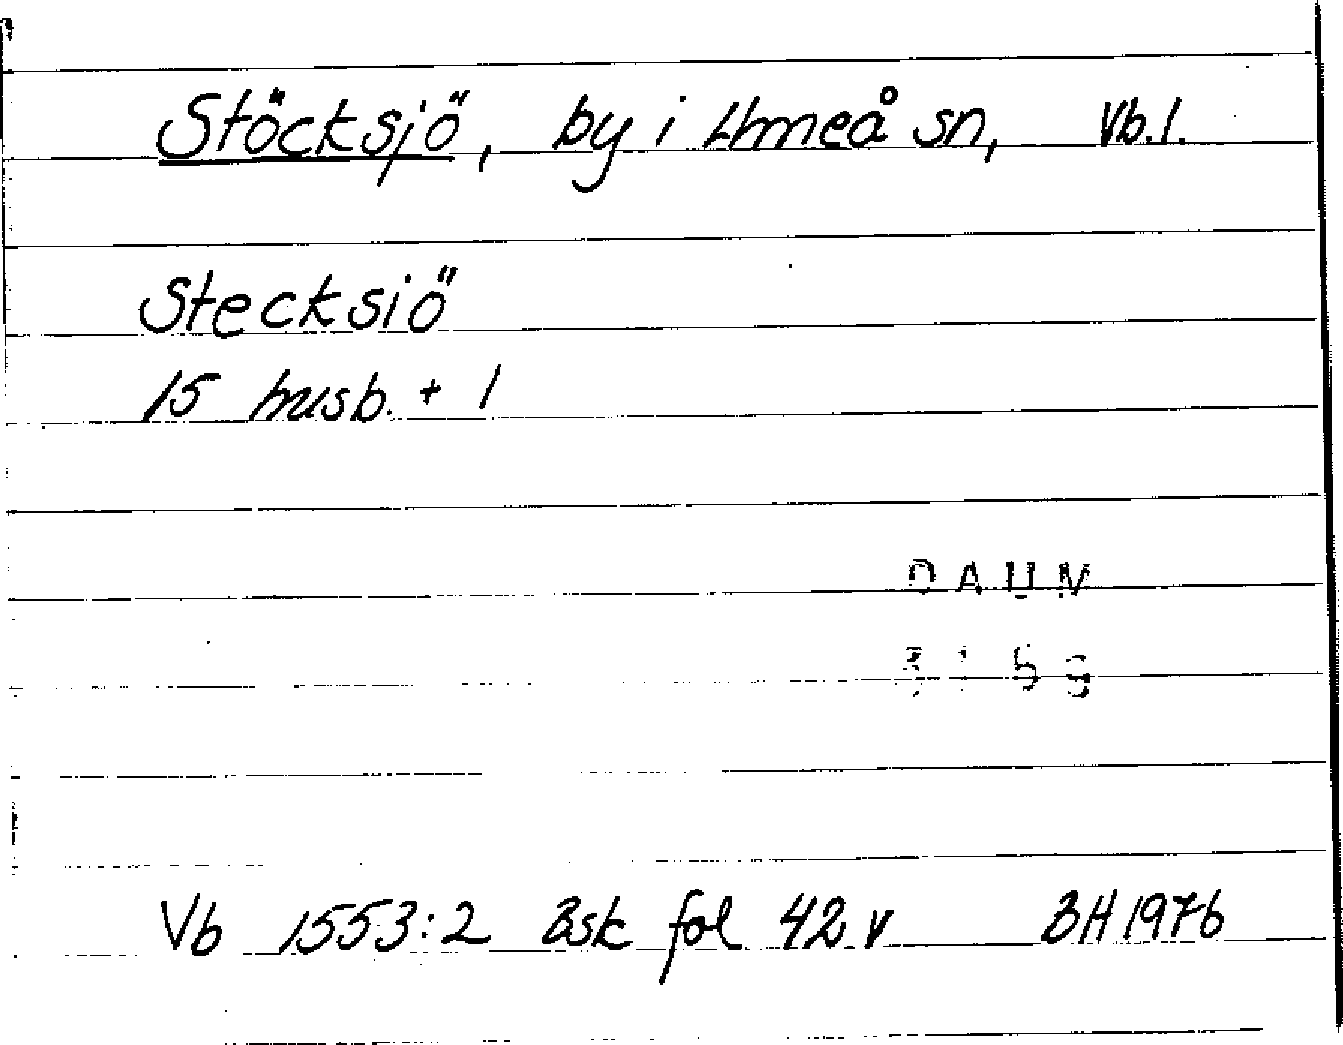 Stöcksjö, by i Umeå sn, Vb.l.
Stecksiö
15 husb. + 1
DAUM
3159
Vb 1553:2 Bsk fol 42 v BH 1976